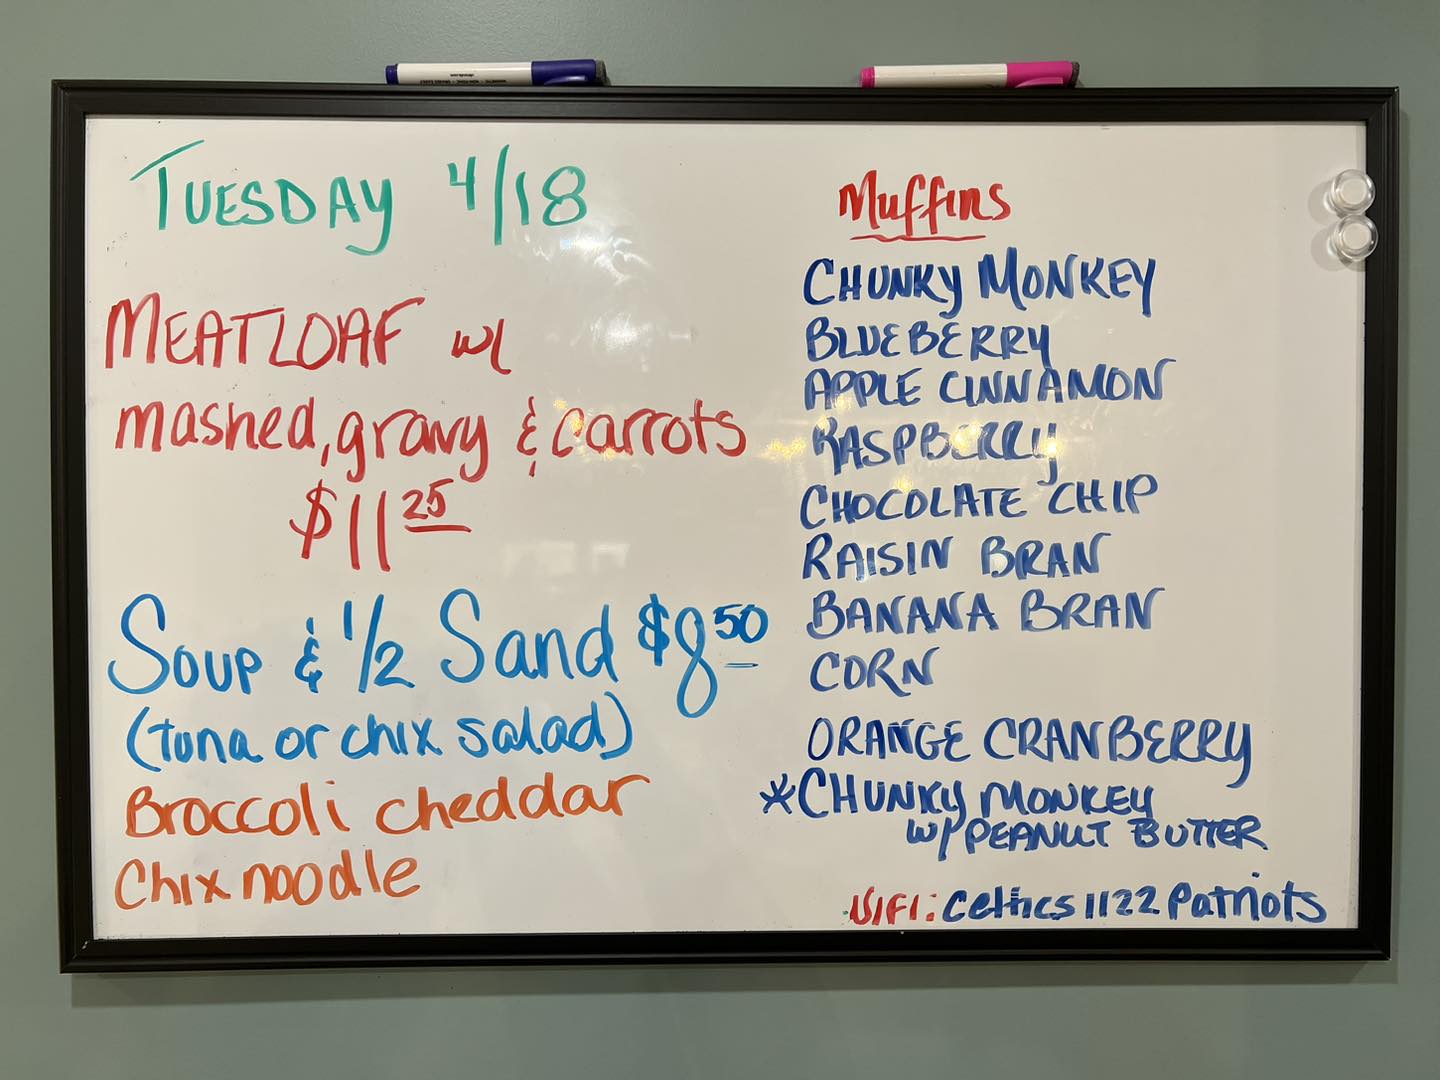 TUESDAY 4/18
MEATLOAF w/
mashed, gravy & carrots
$11 25
Soup & 1/2 Sand $8 50
(tuna or chix salad)
Broccoli cheddar
Chix noodle
Muffins
CHUNKY MONKEY
BLUEBERRY
APPLE CINNAMON
RASPBERRY
CHOCOLATE CHIP
RAISIN BRAN
BANANA BRAN
CORN
ORANGE CRANBERRY
*CHUNKY MONKEY
W/ PEANUT BUTTER
WIFI: Celtics1122Patriots